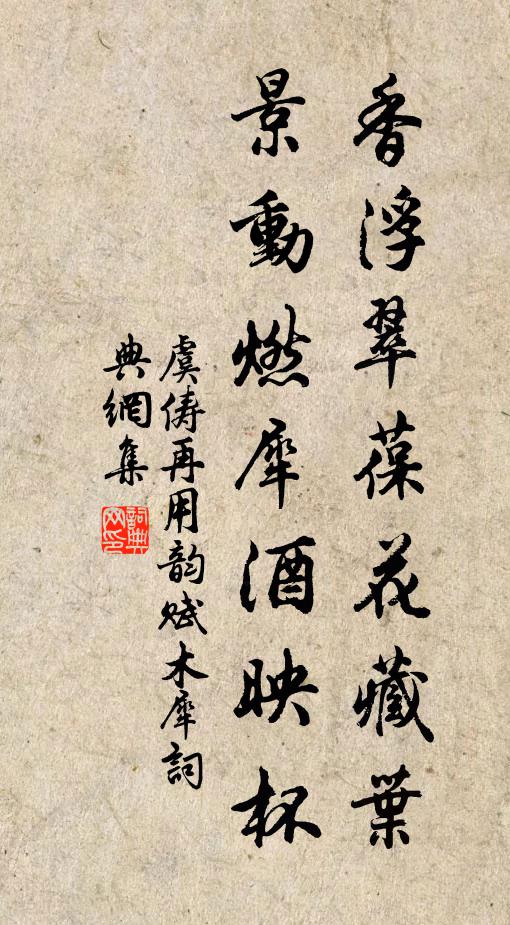 香浮翠葆花藏葉
景動燃犀酒映杯
虞儔再用韵賦木犀詞
典網集
詞典网印